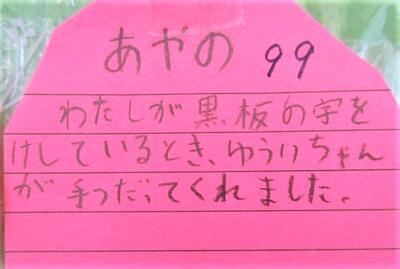 あやの 99
わたしが黒板の字を
けしているとき、ゆうりちゃん
が手つだってくれました。